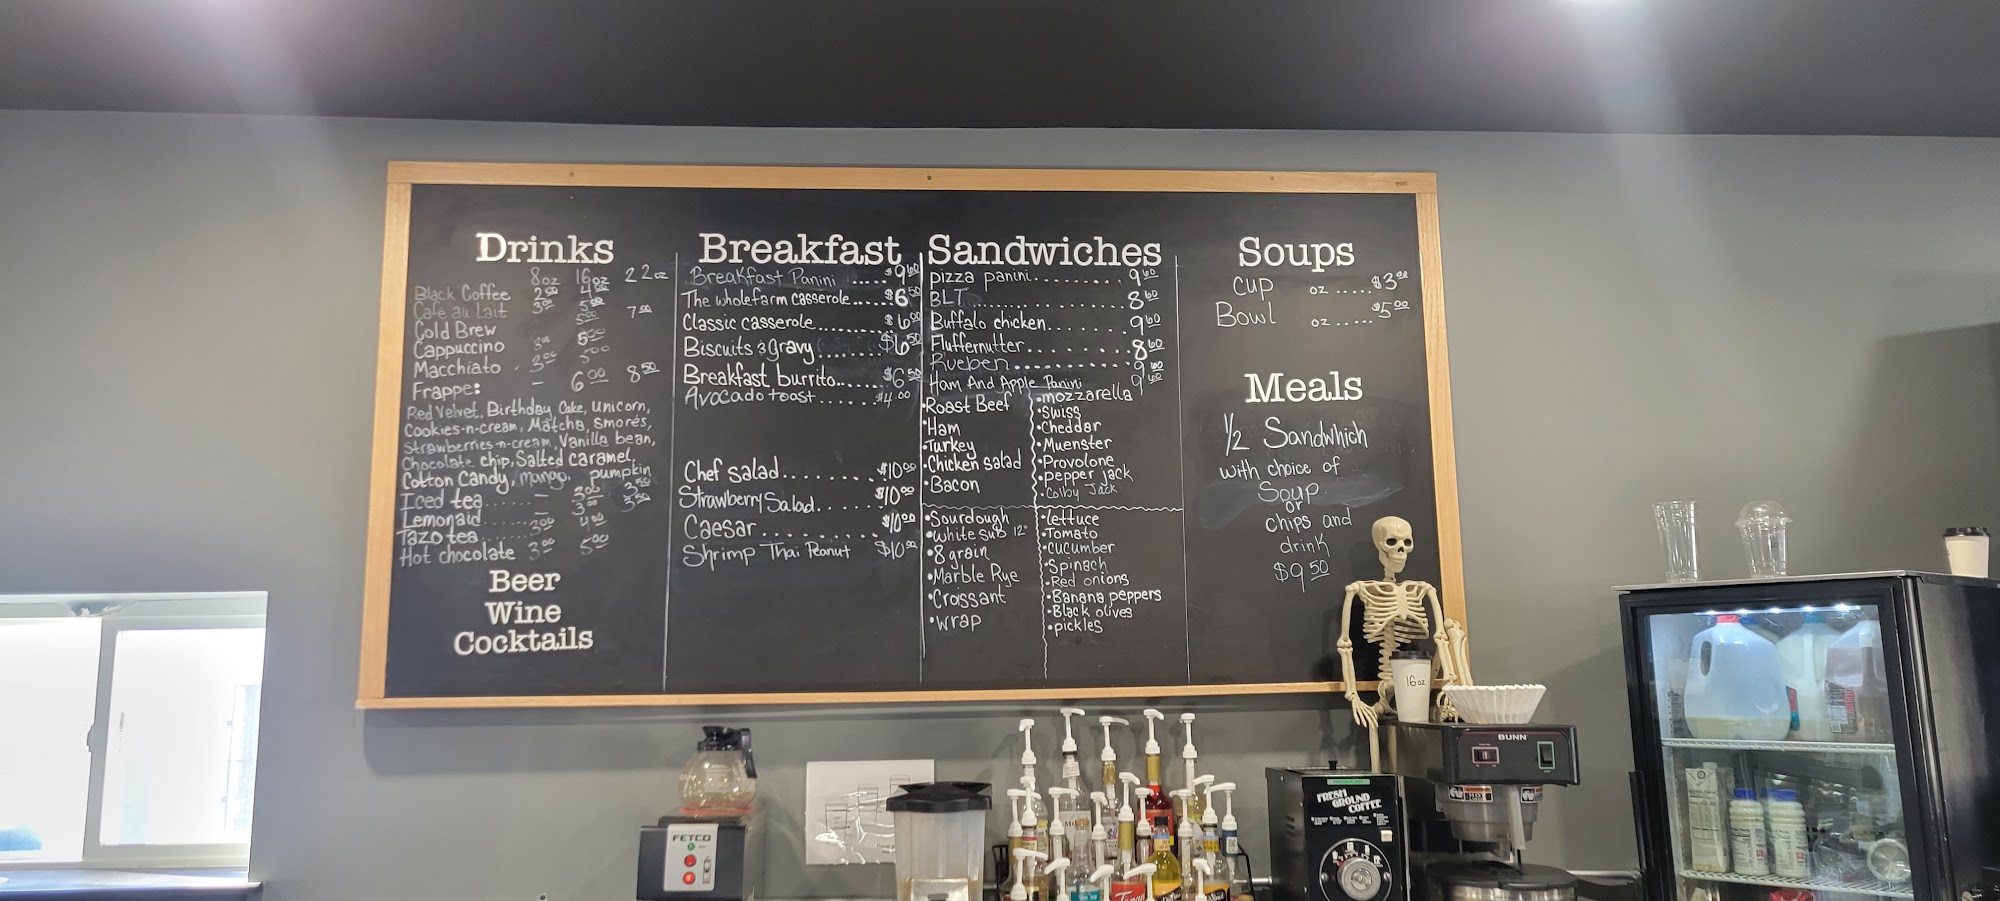 Drinks
8oz 16oz 22oz
Black Coffee 2.50 4.00
Café au Lait 3.00 5.00
Cold Brew 5.00 7.00
Cappuccino 3.00 5.00
Macchiato 3.00 5.00
Frappe: – 6.00 8.50
Red Velvet, Birthday Cake, unicorn,
Cookies-n-cream, Matcha, smores,
Strawberries-n-cream, Vanilla bean,
Chocolate chip, Salted caramel,
Cotton Candy, mango, pumpkin
Iced tea ...... – 3.00 3.50
Lemonaid ...... – 3.00 3.50
Tazo tea ...... 3.00 4.00
Hot chocolate 3.00 5.00
Beer
Wine
Cocktails
Breakfast
Breakfast Panini ..... $9.60
The wholefarm casserole ..... $6.50
Classic casserole ........ $6.00
Biscuits & gravy ........ $6.50
Breakfast burrito ..... $6.50
Avocado toast ...... $4.00
Chef salad ........ $10.00
Strawberry Salad ..... $10.00
Caesar ......... $10.00
Shrimp Thai Peanut $10.00
Sandwiches
pizza panini ......... 9.60
BLT ............... 8.60
Buffalo chicken ....... 9.60
Fluffernutter ......... 8.60
Rueben ......... 9.60
Ham And Apple Panini 9.60
•Roast Beef
•Ham
•Turkey
•Chicken salad
•Bacon
•mozzarella
•Swiss
•Cheddar
•Muenster
•Provolone
•pepper jack
•Colby Jack
•Sourdough
•white sub 12"
•8 grain
•Marble Rye
•Croissant
•wrap
•lettuce
•Tomato
•Cucumber
•Spinach
•Red onions
•Banana peppers
•Black olives
•pickles
Soups
Cup oz ..... $3.00
Bowl oz ..... $5.00
Meals
1/2 Sandwhich
with choice of
Soup
or
chips and
drink
$9.50
16oz
BUNN
FETCO
FRESH
GROUND
COFFEE